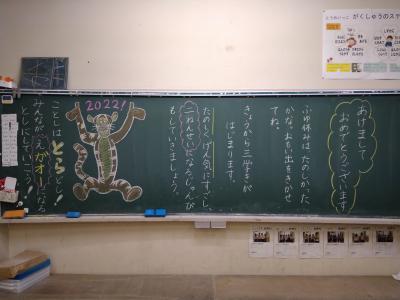 あけまして
おめでとうございます
ふゆ休みは、たのしかった
かな。おもい出をきかせ
てね。
きょうから三学きが
はじまります。
たのしくげん気にすごし、
二ねんせいになるじゅんび
もしていきましょう。
2022!
ことしはとらどし!
みんなが「えがオー」になる
としにしていこう!
がくしゅうのステ